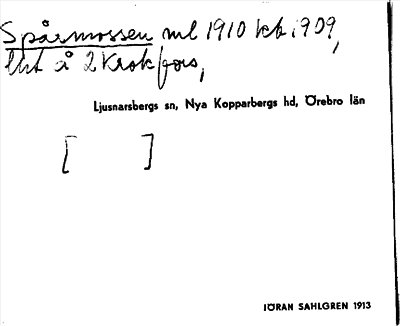 Spårmossen ml 1910 kb 1909,
litt å 2 Krokfors,
Ljusnarsbergs sn, Nya Kopparbergs hd, Örebro län
[ ]
JÖRAN SAHLGREN 1913